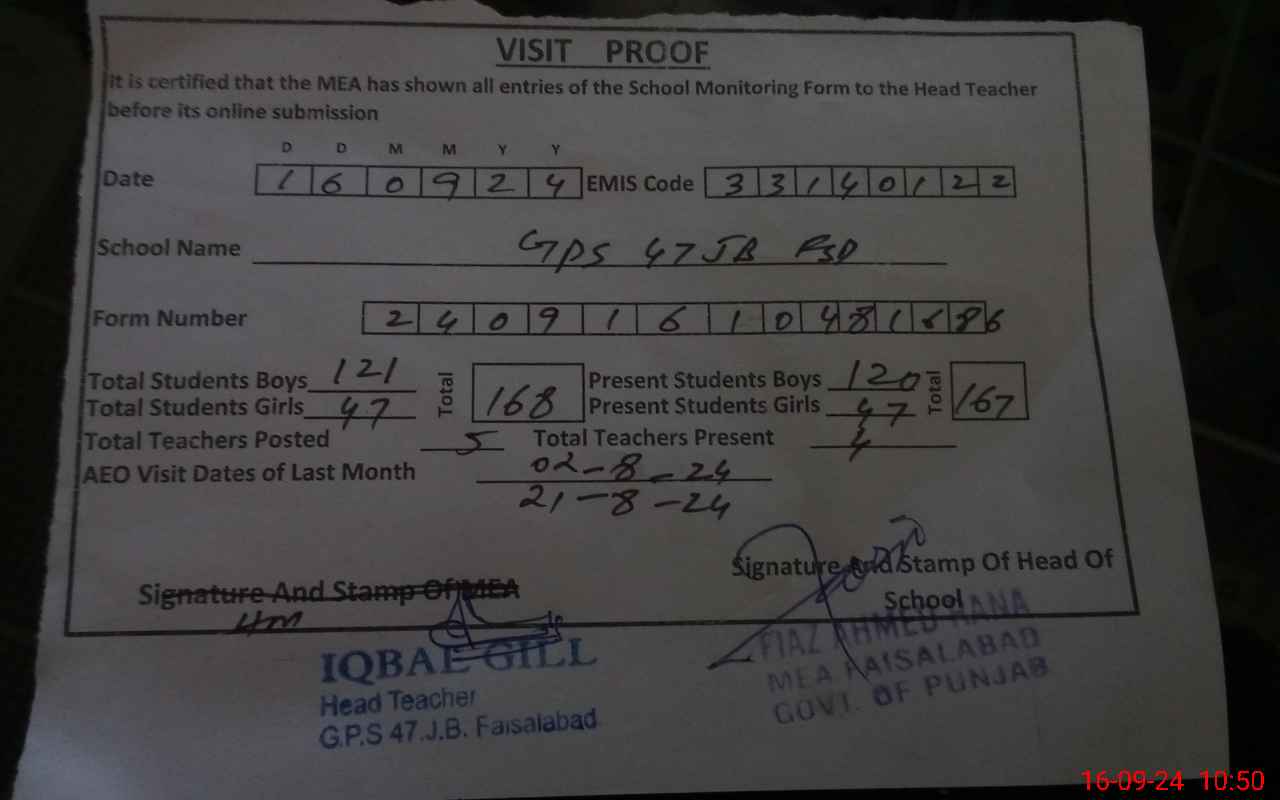 VISIT PROOF
It is certified that the MEA has shown all entries of the School Monitoring Form to the Head Teacher
before its online submission
D D M M Y Y
Date 1 6 0 9 2 4 EMIS Code 3 3 1 4 0 1 2 2
School Name GPS 47 JB FSD
Form Number 2 4 0 9 1 6 1 0 4 8 1 6 8 6
Total Students Boys 121 Total 168 Present Students Boys 120 Total 167
Total Students Girls 47 Present Students Girls 47
Total Teachers Posted 5 Total Teachers Present 4
AEO Visit Dates of Last Month 02-8-24
21-8-24
Signature And Stamp Of MEA
HM
Signature And Stamp Of Head Of
School
IQBAL GILL
Head Teacher
G.P.S 47.J.B. Faisalabad
FIAZ AHMED RANA
MEA FAISALABAD
GOVT. OF PUNJAB
16-09-24 10:50